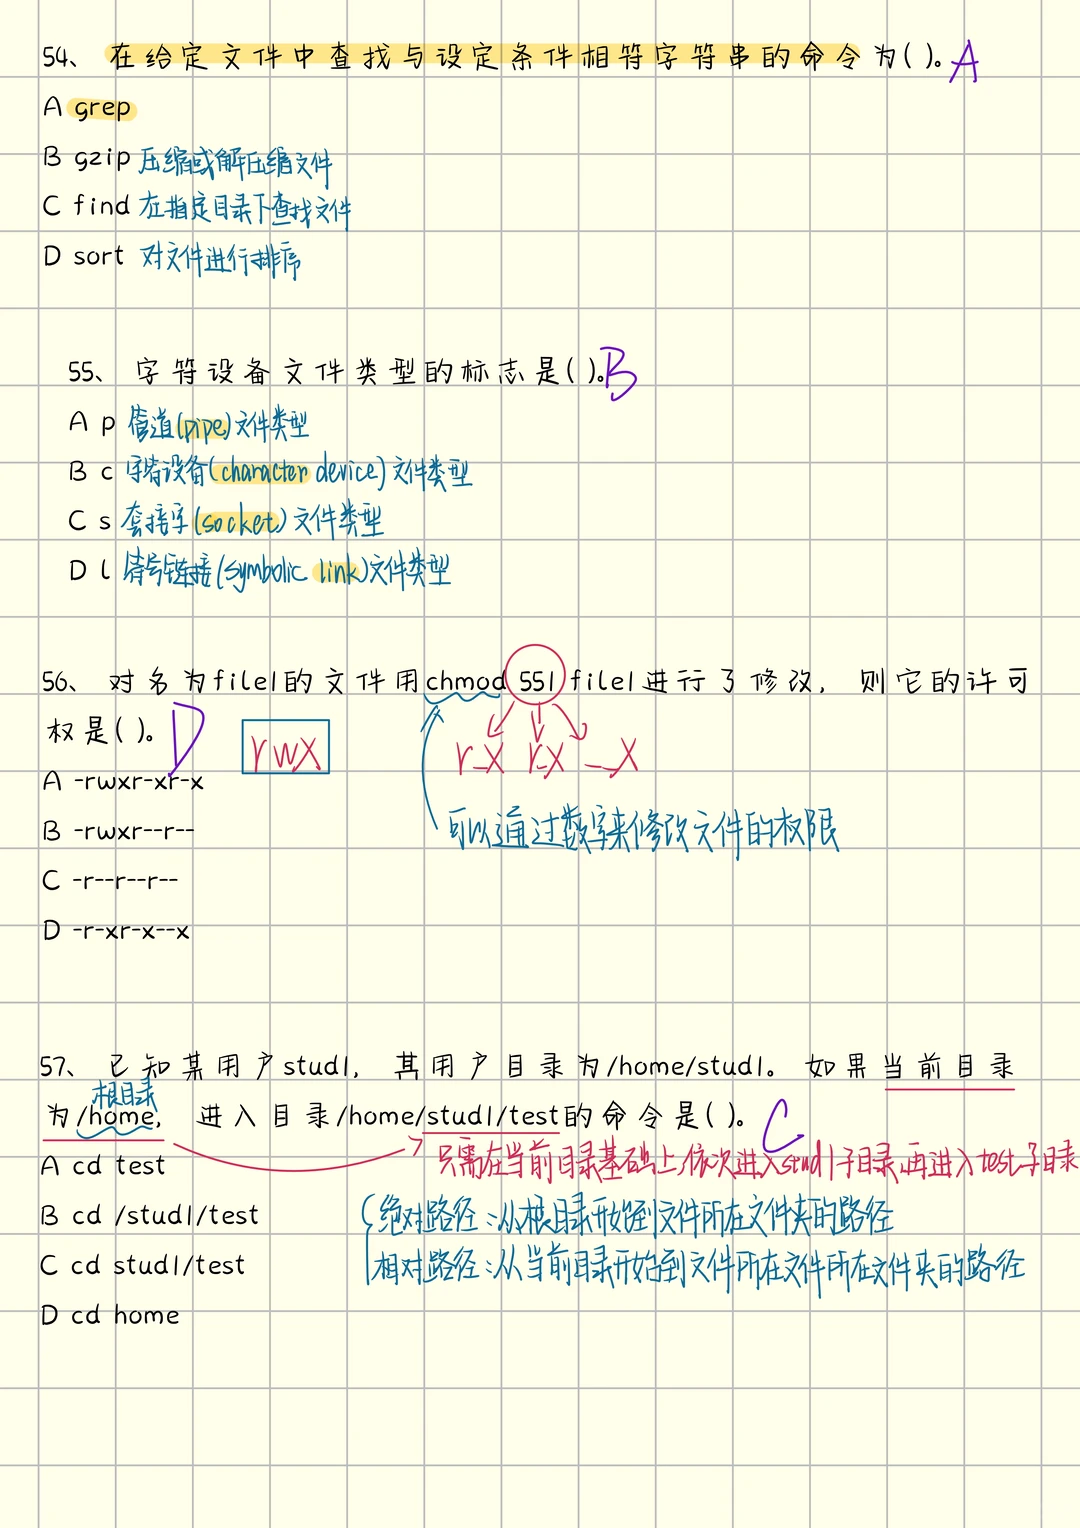 54、在给定文件中查找与设定条件相符字符串的命令为( )。A
A grep
B gzip 压缩或解压缩文件
C find 在指定目录下查找文件
D sort 对文件进行排序
55、字符设备文件类型的标志是( )。B
A p 管道(pipe)文件类型
B c 字符设备(character device)文件类型
C s 套接字(socket)文件类型
D l 符号链接(symbolic link)文件类型
56、对名为file1的文件用chmod 551 file1进行了修改，则它的许可
权是( )。D
rwx
r_x r_x __x
A -rwxr-xr-x
可以通过数字来修改文件的权限
B -rwxr--r--
C -r--r--r--
D -r-xr-x--x
57、已知某用户stud1，其用户目录为/home/stud1。如果当前目录
根目录
为/home，进入目录/home/stud1/test的命令是( )。C
只需在当前目录基础上，依次进入stud1子目录，再进入test子目录
A cd test
B cd /stud1/test
绝对路径：从根目录开始到文件所在文件夹的路径
C cd stud1/test
相对路径：从当前目录开始到文件所在文件所在文件夹的路径
D cd home